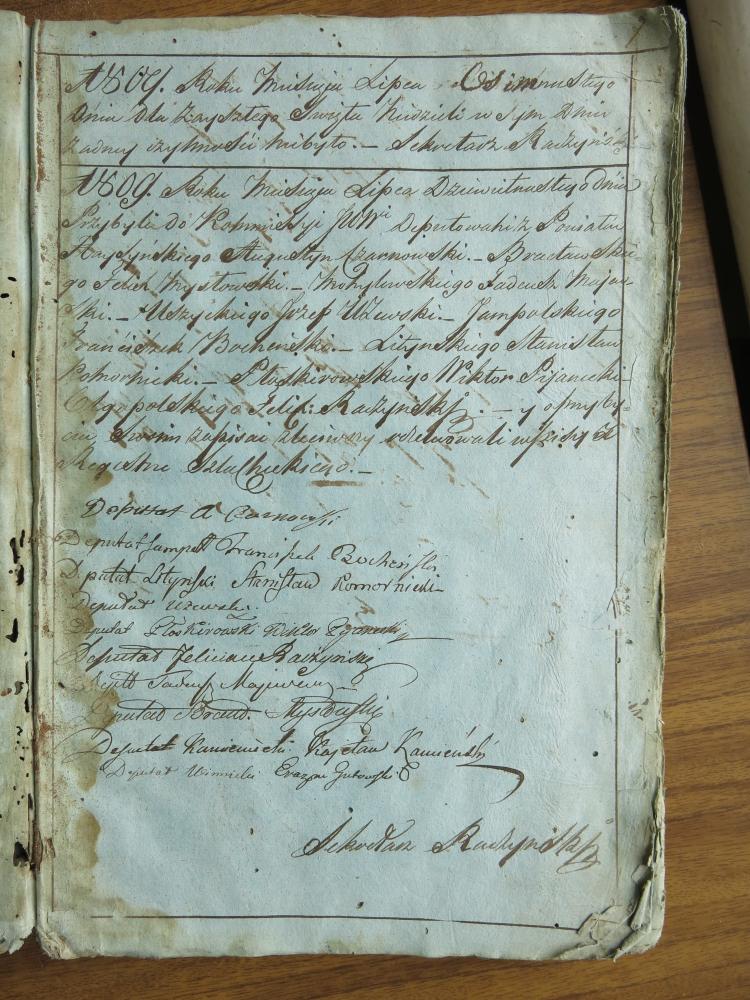 1809. Roku Miesiąca Lipca Osimnastego
Dnia dla Zayszłego Swięta Niedzieli w tym Dniu
żadney czynnosci niebyło. — Sekretarz Raczyński
1809. Roku Miesiąca Lipca Dziewiętnastego dnia
Przybyli do Kommissyi JWWi Deputowani z Powiatu
Haysynskiego Augustyn Czarnowski. — Bracławskie-
go Felix Mysłowski. — Mohylowskiego Tadeusz Majew-
ski. — Uszyckiego Jozef Użewski. — Jampolskiego
Franciszek Bochenski. — Lityńskiego Stanisław
Komornicki. — Płoskirowskiego Wiktor Pijanicki
Olgopolskiego Felic: Raczynski. — y o przyby-
ciu Swoim zapisać
Regestru Szlacheckiego. —
Deputat A Czarnowski
Deputat Jampol Franciszek Bocheński
Deputat Lityński Stanisław Komornicki
Deputat Użewski.
Deputat Płoskirowski Wiktor
Deputat Felician Raczyński
Tadeusz Majewski
Deputat Bracł. Mysłowski
Deputat Kamieniecki Kajetan Kamieński
Deputat Winnicki Erazm Gutowski
Sekretarz Raczyński